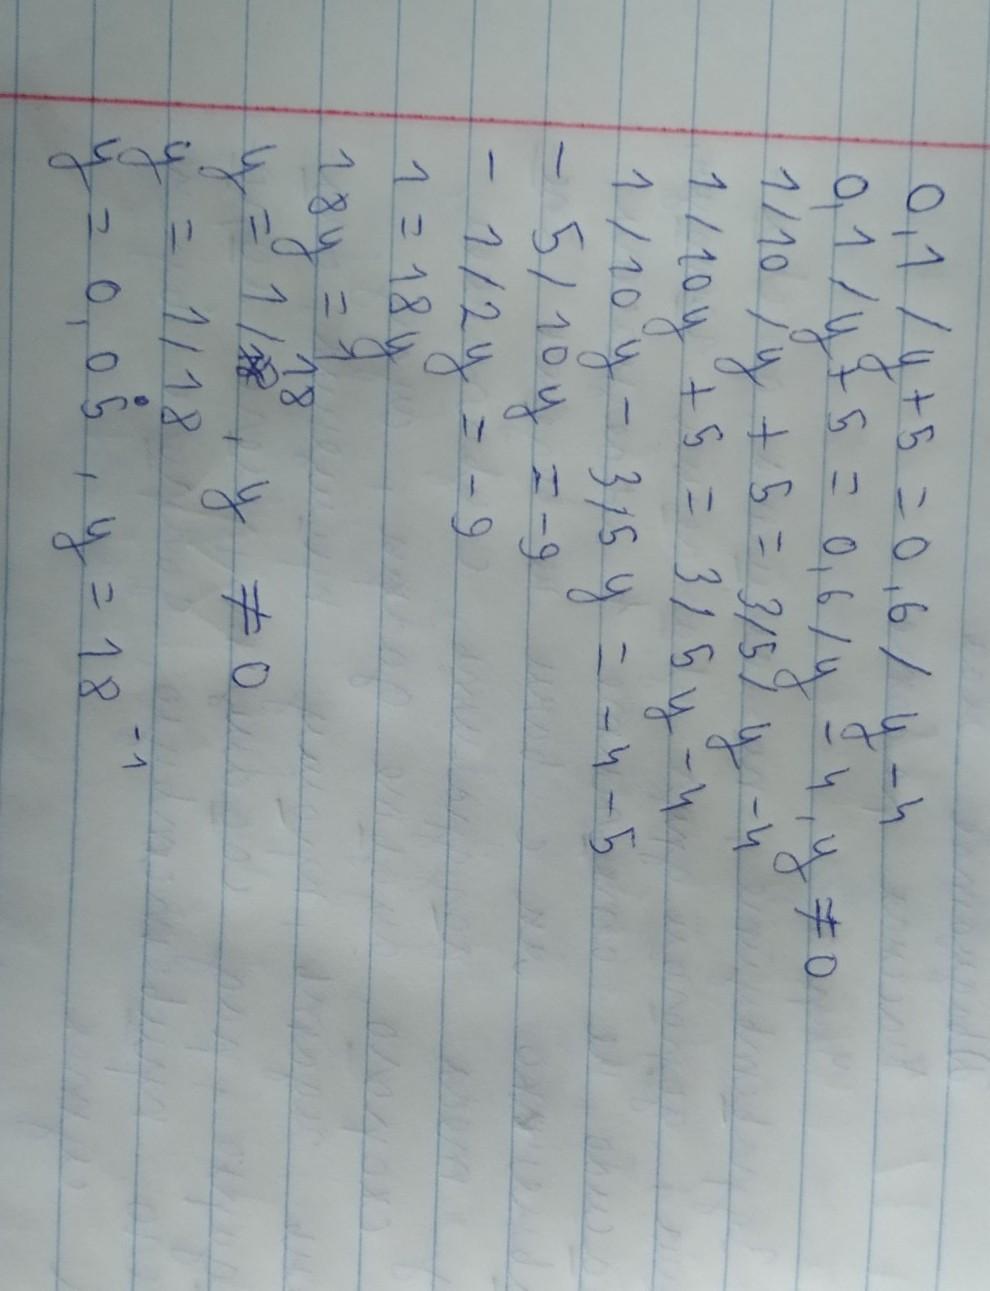 0,1/y+5=0,6/y-4
0,1/y+5=0,6/y-4, y≠0
1/10/y+5=3/5/y-4
1/10y+5=3/5y-4
1/10y-3/5y=-4-5
-5/10y=-9
-1/2y=-9
1=18y
18y=1
y=1/18, y≠0
y=1/18
y=0,05̇, y=18⁻¹